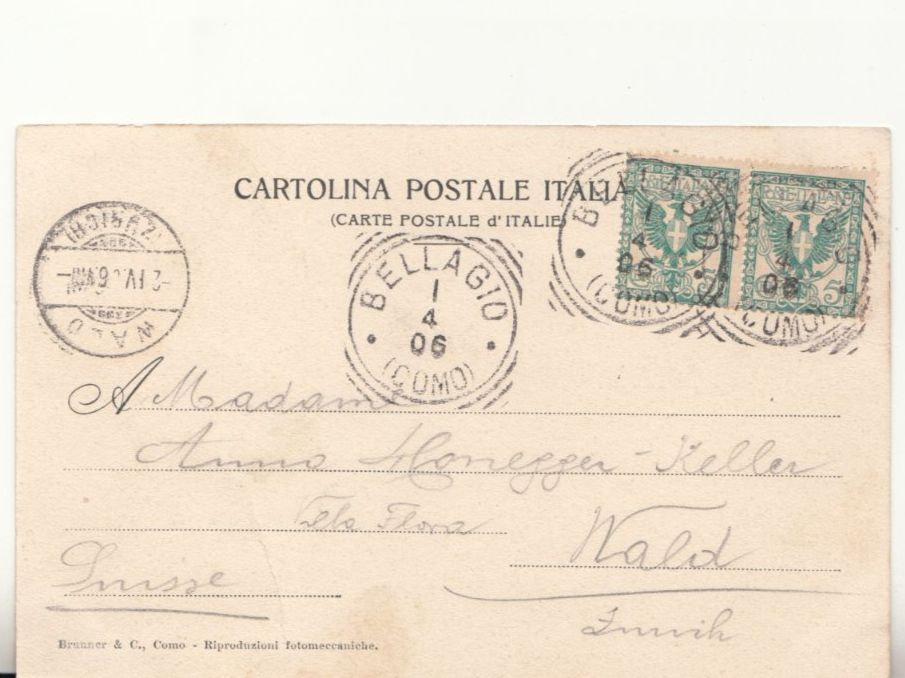 CARTOLINA POSTALE ITALIANA
(CARTE POSTALE d'ITALIE)
BELLAGIO
1
4
06
(COMO)
1
4
06
(COMO)
5
1
4
06
(COMO)
5
(ZÜRICH)
WALD
A Madame
Anna Honegger-Keller
Flora
Wald
Suisse
Zurich
Brunner & C., Como - Riproduzioni fotomeccaniche.